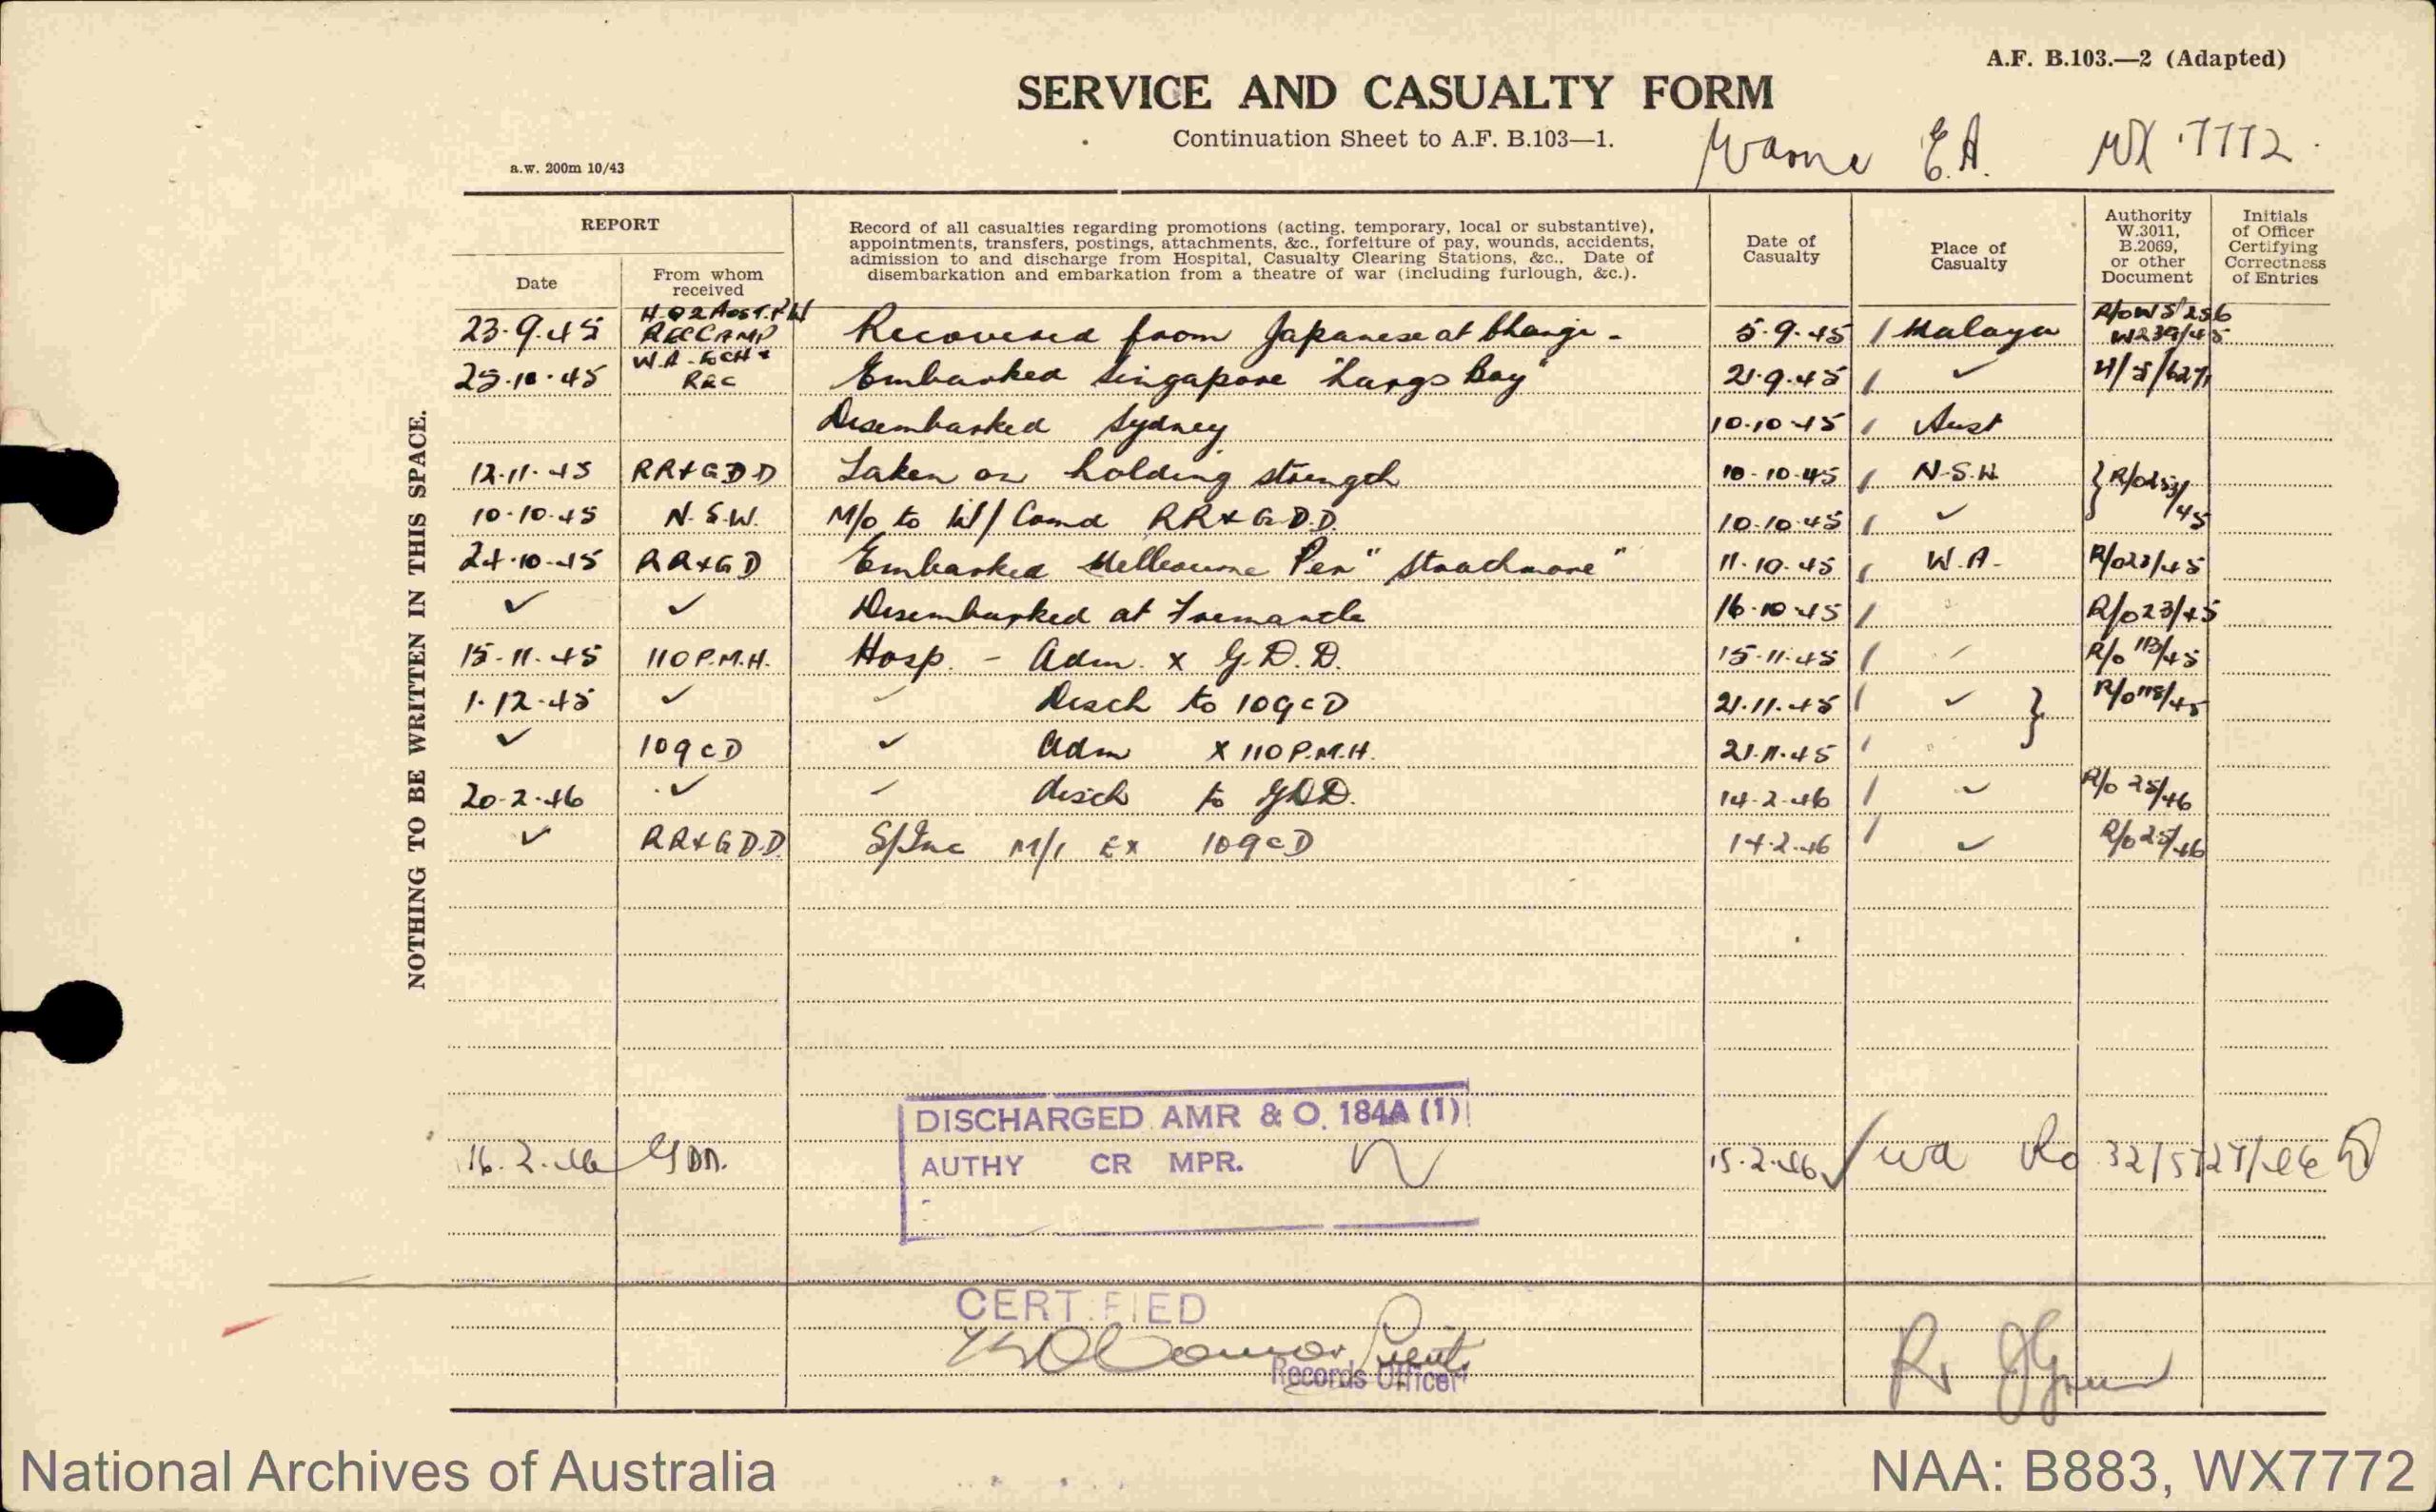 A.F. B.103.—2 (Adapted)
SERVICE AND CASUALTY FORM
Continuation Sheet to A.F. B.103—1.
Warne E.A. WX 7772.
a.w. 200m 10/43
NOTHING TO BE WRITTEN IN THIS SPACE.
REPORT
Date
From whom received
Record of all casualties regarding promotions (acting, temporary, local or substantive),
appointments, transfers, postings, attachments, &c., forfeiture of pay, wounds, accidents,
admission to and discharge from Hospital, Casualty Clearing Stations, &c., Date of
disembarkation and embarkation from a theatre of war (including furlough, &c.).
Date of Casualty
Place of Casualty
Authority W.3011, B.2069, or other Document
Initials of Officer Certifying Correctness of Entries
23.9.45 H.Q 2 Aust. P.W REC CAMP Recovered from Japanese at Changi - 5.9.45 Malaya W239/45
25.10.45 W.A. Ech & Rec Embarked Singapore "Largs Bay" 21.9.45 ✓
Disembarked Sydney 10.10.45 Aust
12.11.45 RR+GDD Taken on holding strength 10-10-45 N.S.W.
10-10-45 N.S.W. M/o to W/Comd RR+G.D.D. 10.10.45 ✓
24.10.45 RR+GD Embarked Melbourne Per "Strathmore" 11.10.45 W.A. R/o23/45
✓ ✓ Disembarked at Fremantle 16.10.45 R/o23/45
15.11.45 110 P.M.H. Hosp. - Adm. x G.D.D. 15.11.45 ✓ R/o 113/45
1.12.45 ✓ ✓ Disch to 109CD 21.11.45 ✓ R/o118/45
✓ 109CD ✓ Adm X 110 P.M.H. 21.11.45
20-2-46 ✓ ✓ disch to GDD. 14-2-46 ✓ R/o 25/46
✓ RR+GD.D. M/I EX 109CD 14.2.46 ✓ R/o25/46
16.2.46 GDD. DISCHARGED AMR & O. 184A (1) 15.2.46 WA Ro
AUTHY CR MPR.
CERTIFIED
Lieut.
Records Officer
National Archives of Australia
NAA: B883, WX7772